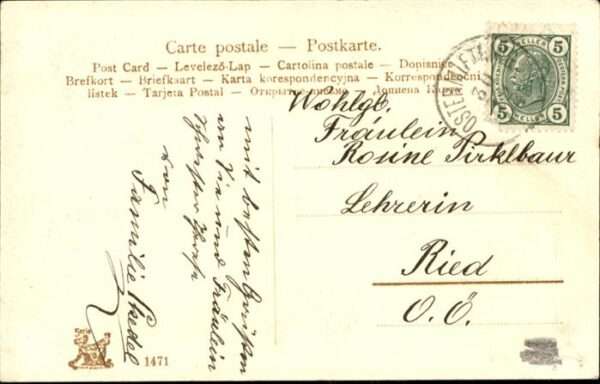 Carte postale — Postkarte.
Post Card — Levelező-Lap — Cartolina postale — Dopisnice
Brefkort — Briefkaart — Karta korespondencyjna — Korrespondenčni
listek — Tarjeta Postal — Открытое письмо —
5 HELLER 5
5 HELLER 5
Wohlgb.
Fräulein
Rosine Pirklbaur
Lehrerin
Ried
O. Ö.
mit besten Grüßen
an Sie und Fräulein
Schwester
von
Familie
Serie
1471